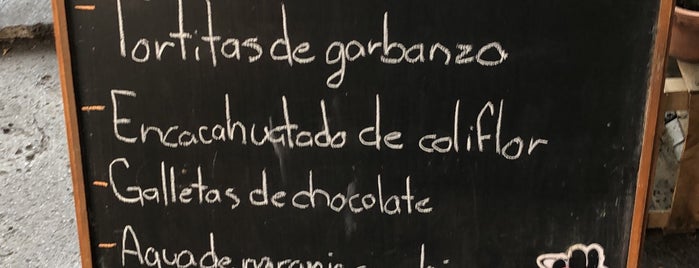 - Tortitas de garbanzo
- Encacahuatado de coliflor
- Galletas de chocolate
- Agua de naranja